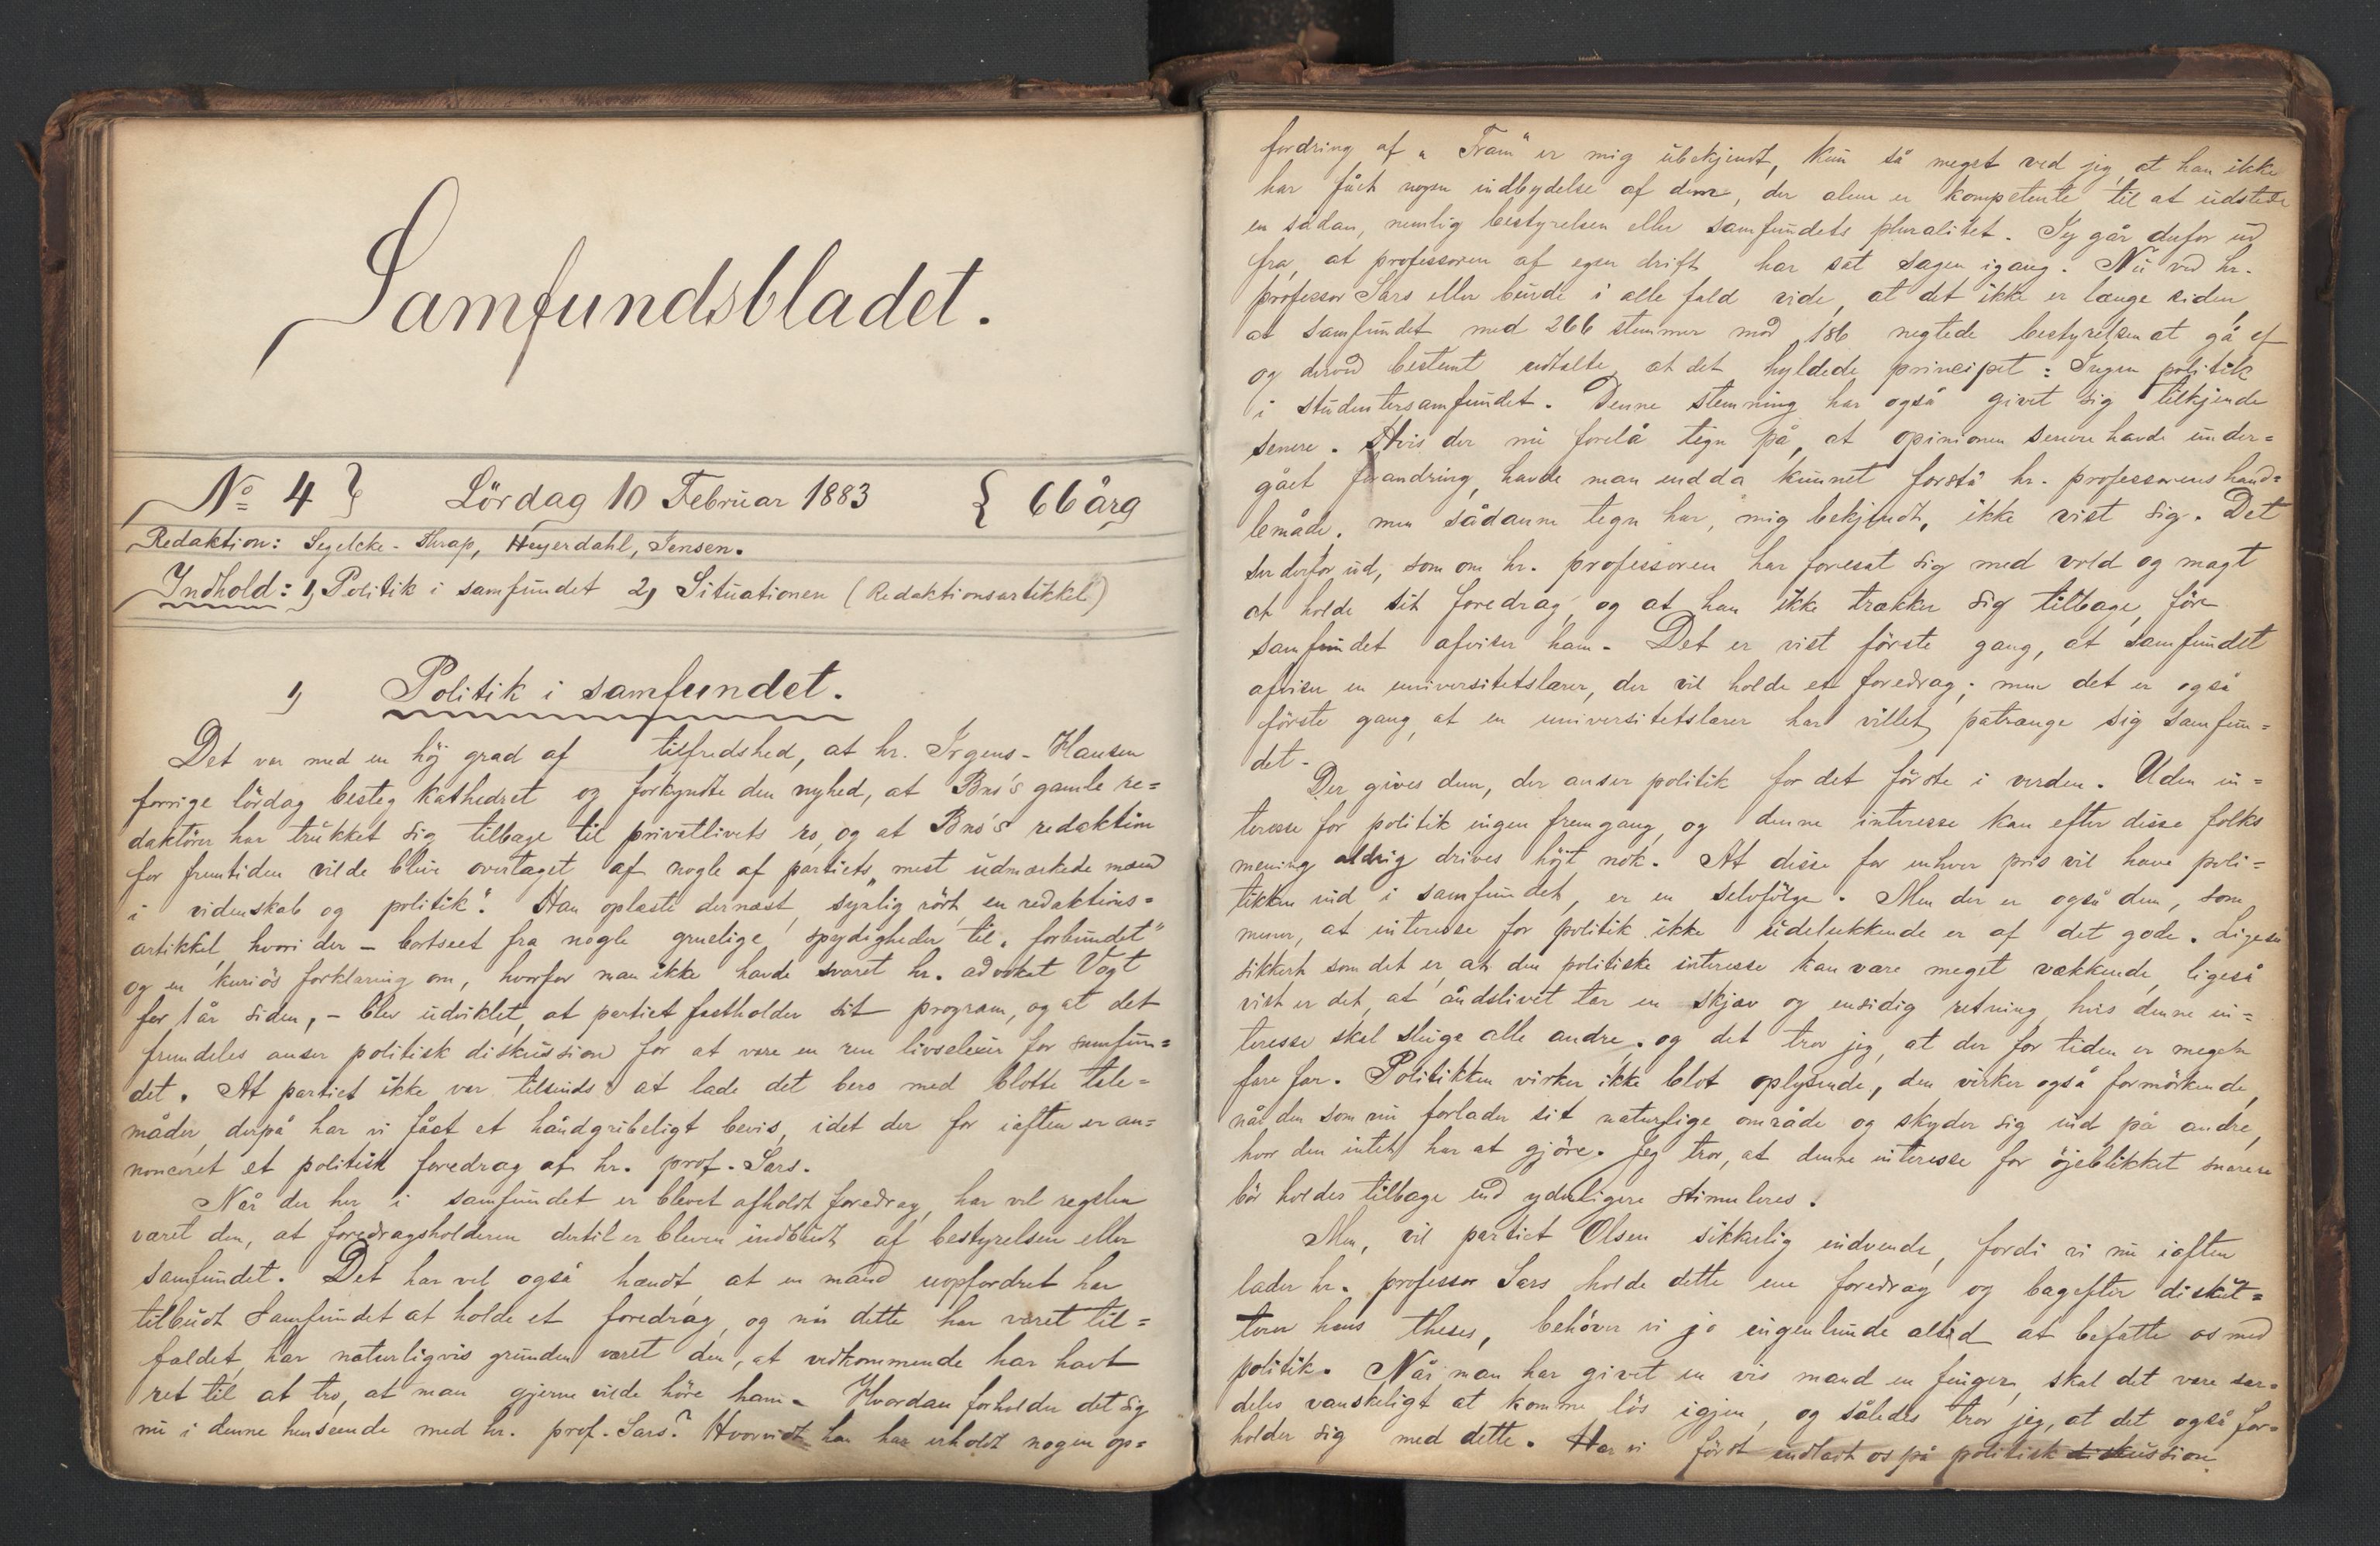 Samfundsbladet.
No 4 } Lördag 10 Februar 1883 { 66 årg
Redaktion: Segelcke-Thrap, Heyerdahl, Jensen.
Indhold: 1) Politik i samfundet 2) Situationen (Redaktionsartikkel)
1) Politik i samfundet.
Det var med en höj grad af tilfredshed, at hr. Irgens-Hansen
forrige lördag besteg kathedret og forkyndte den nyhed, at Bno's gamle re=
daktörer har trukket sig tilbage til privatlivets ro, og at Bno's redaktion
for fremtiden vilde blive overtaget af nogle af partiets „mest udmærkede mænd
i videnskab og politik“. Han oplæste dernæst, synlig rört, en redaktions=
artikkel, hvori der – bortseet fra nogle gruelige spydigheder til „forbundet“
og en kuriös forklaring om, hvorfor man ikke havde svaret hr. advokat Vogt
for 1 år siden, – blev udviklet, at partiet fastholder sit program, og at det
fremdeles anser politisk diskussion for at være en ren livselexir for samfun=
det. At partiet ikke var tilsinds at lade det bero med blotte tale=
måder, derpå har vi fået et håndgribeligt bevis, idet der for iaften er an=
nonceret et politisk foredrag af hr. prof. Sars.
Når der her i samfundet er blevet afholdt foredrag, har vel regelen
været den, at foredragsholderen dertil er bleven indbudt af bestyrelsen eller
samfundet. Det har vel også hændt, at en mand uopfordret har
tilbudt samfundet at holde et foredrag, og når dette har været til=
faldet, har naturligvis grunden været den, at vedkommende har havt
ret til at tro, at man gjerne vilde höre ham. Hvordan forholder det sig
nu i denne henseende med hr. prof. Sars? Hvorvidt han har erholdt nogen op=
fordring af „Fram“ er mig ubekjendt, kun så meget ved jeg, at han ikke
har fået nogen indbydelse af dem, der alene er kompetente til at udstede
en sådan, nemlig bestyrelsen eller samfundets pluralitet. Jeg går derfor ud
fra, at professoren af egen drift har sat sagen igang. Nu ved hr.
professor Sars eller burde i alle fald vide, at det ikke er længe siden,
at samfundet med 266 stemmer mod 186 negtede bestyrelsen at gå af
og derved bestemt udtalte, at det hyldede principet: Ingen politik
i studentersamfundet. Denne stemning har også givet sig tilkjende
senere. Hvis der nu forelå tegn på, at opinionen senere havde under=
gået forandring, havde man endda kunnet forstå hr. professorens hand=
lemåde, men sådanne tegn har, mig bekjendt, ikke vist sig. Det
ser derfor ud, som om hr. professoren har foresat sig med vold og magt
at holde sit foredrag, og at han ikke trækker sig tilbage, för
samfundet afviser ham. Det er vist förste gang, at samfundet
afviser en universitetslærer, der vil holde et foredrag; men det er også
förste gang, at en universitetslærer har villet påtrænge sig samfun=
det.
Der gives dem, der anser politik for det förste i verden. Uden in=
teresse for politik ingen fremgang, og denne interesse kan efter disse folks
mening aldrig drives höjt nok. At disse for enhver pris vil have poli=
tikken ind i samfundet, er en selvfölge. Men der er også dem, som
mener, at interesse for politik ikke udelukkende er af det gode. Ligeså
sikkert, som det er, at den politiske interesse kan være meget vækkende, ligeså
vist er det, at åndslivet tar en skjæv og ensidig retning, hvis denne in=
teresse skal sluge alle andre, og det tror jeg, at der for tiden er megen
fare for. Politikken virker ikke blot oplysende, den virker også formörkende,
når den som nu forlader sit naturlige område og skyder sig ind på andre,
hvor den intet har at gjöre. Jeg tror, at denne interesse for öjeblikket snarere
bör holdes tilbage end yderligere stimuleres.
Men, vil partiet Olsen sikkerlig indvende, fordi vi nu iaften
lader hr. professor Sars holde dette ene foredrag og bagefter disku=
terer hans theses, behöver vi jo ingenlunde altid at befatte os med
politik. Når man har givet en vis mand en finger, skal det være sær=
deles vanskeligt at komme lös igjen, og således tror jeg, at det også for=
holder sig med dette. Har vi först indladt os på politisk diskussion